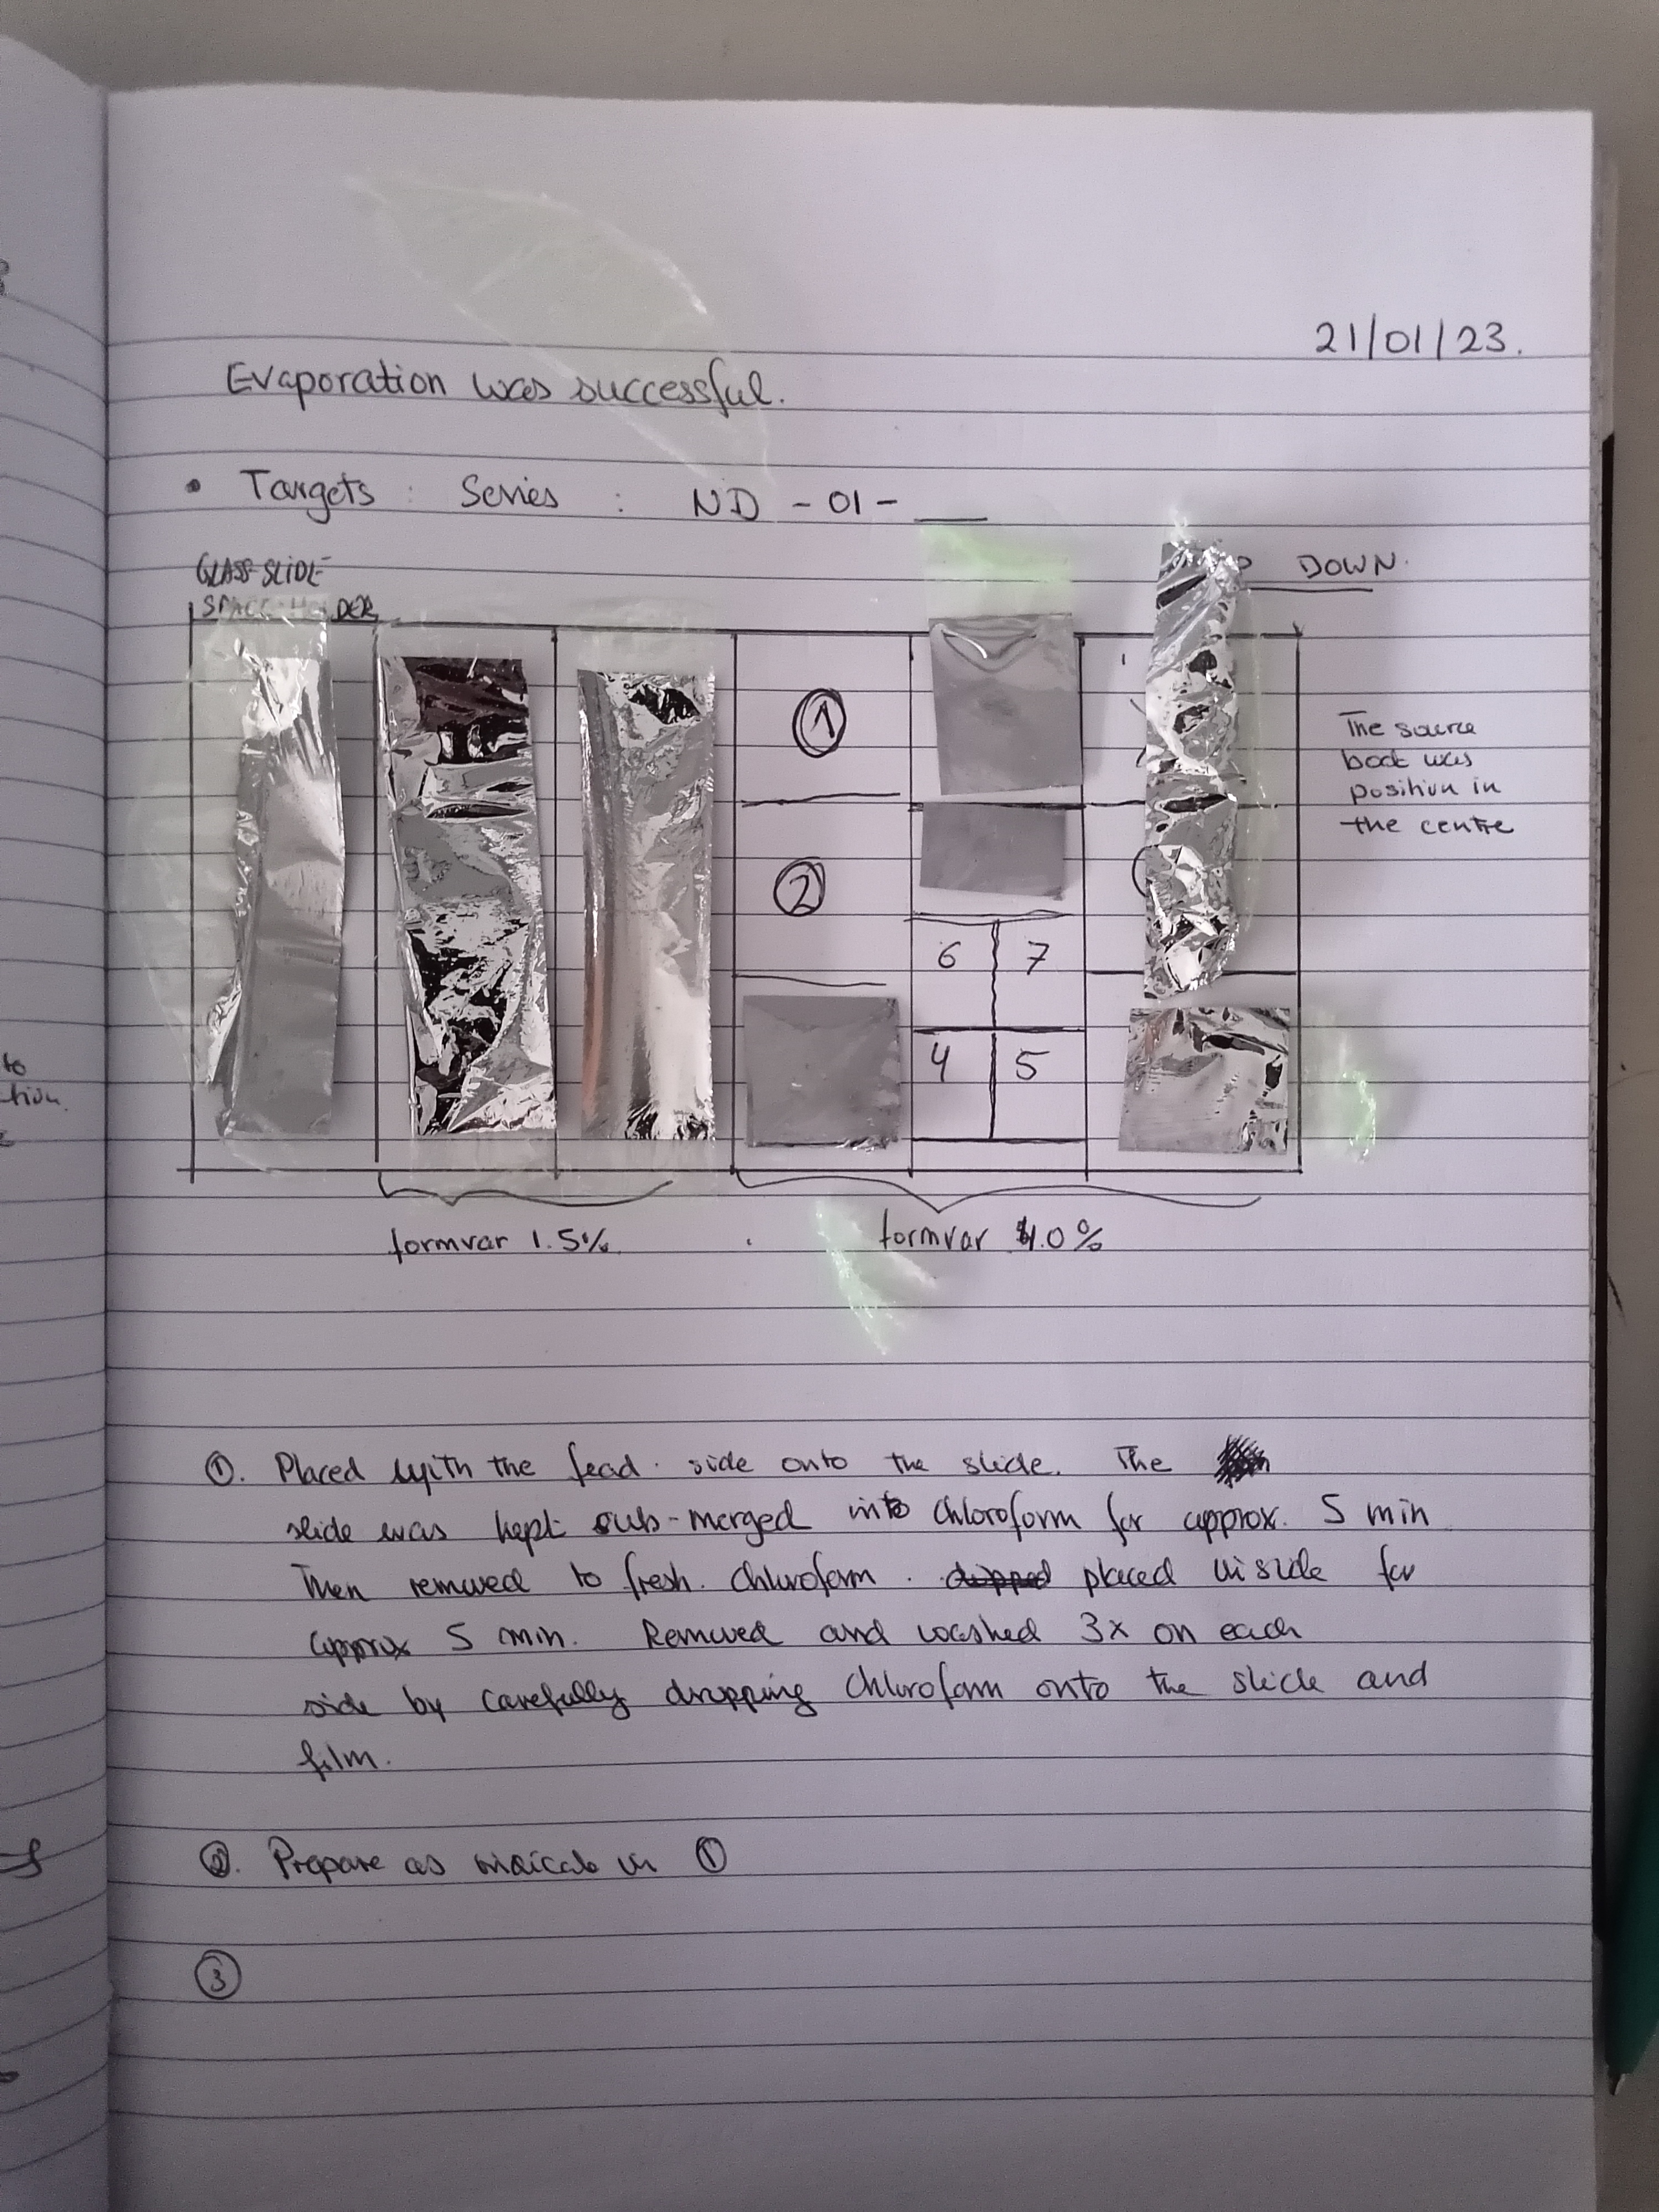 21/01/23.
Evaporation was successful.
• Targets : Series : ND - 01 - __
GLASS SLIDE
SPACE HOLDER
DOWN.
1
2
6 7
4 5
The source
boat was
position in
the centre
formvar 1.5%
formvar 1.0%
①. Placed with the lead side onto the slide. The
slide was kept sub-merged into chloroform for approx. 5 min
Then removed to fresh. chloroform. dipped placed inside for
approx 5 min. Removed and washed 3x on each
side by carefully dropping chloroform onto the slide and
film.
②. Prepare as in ①
③
to
tion.